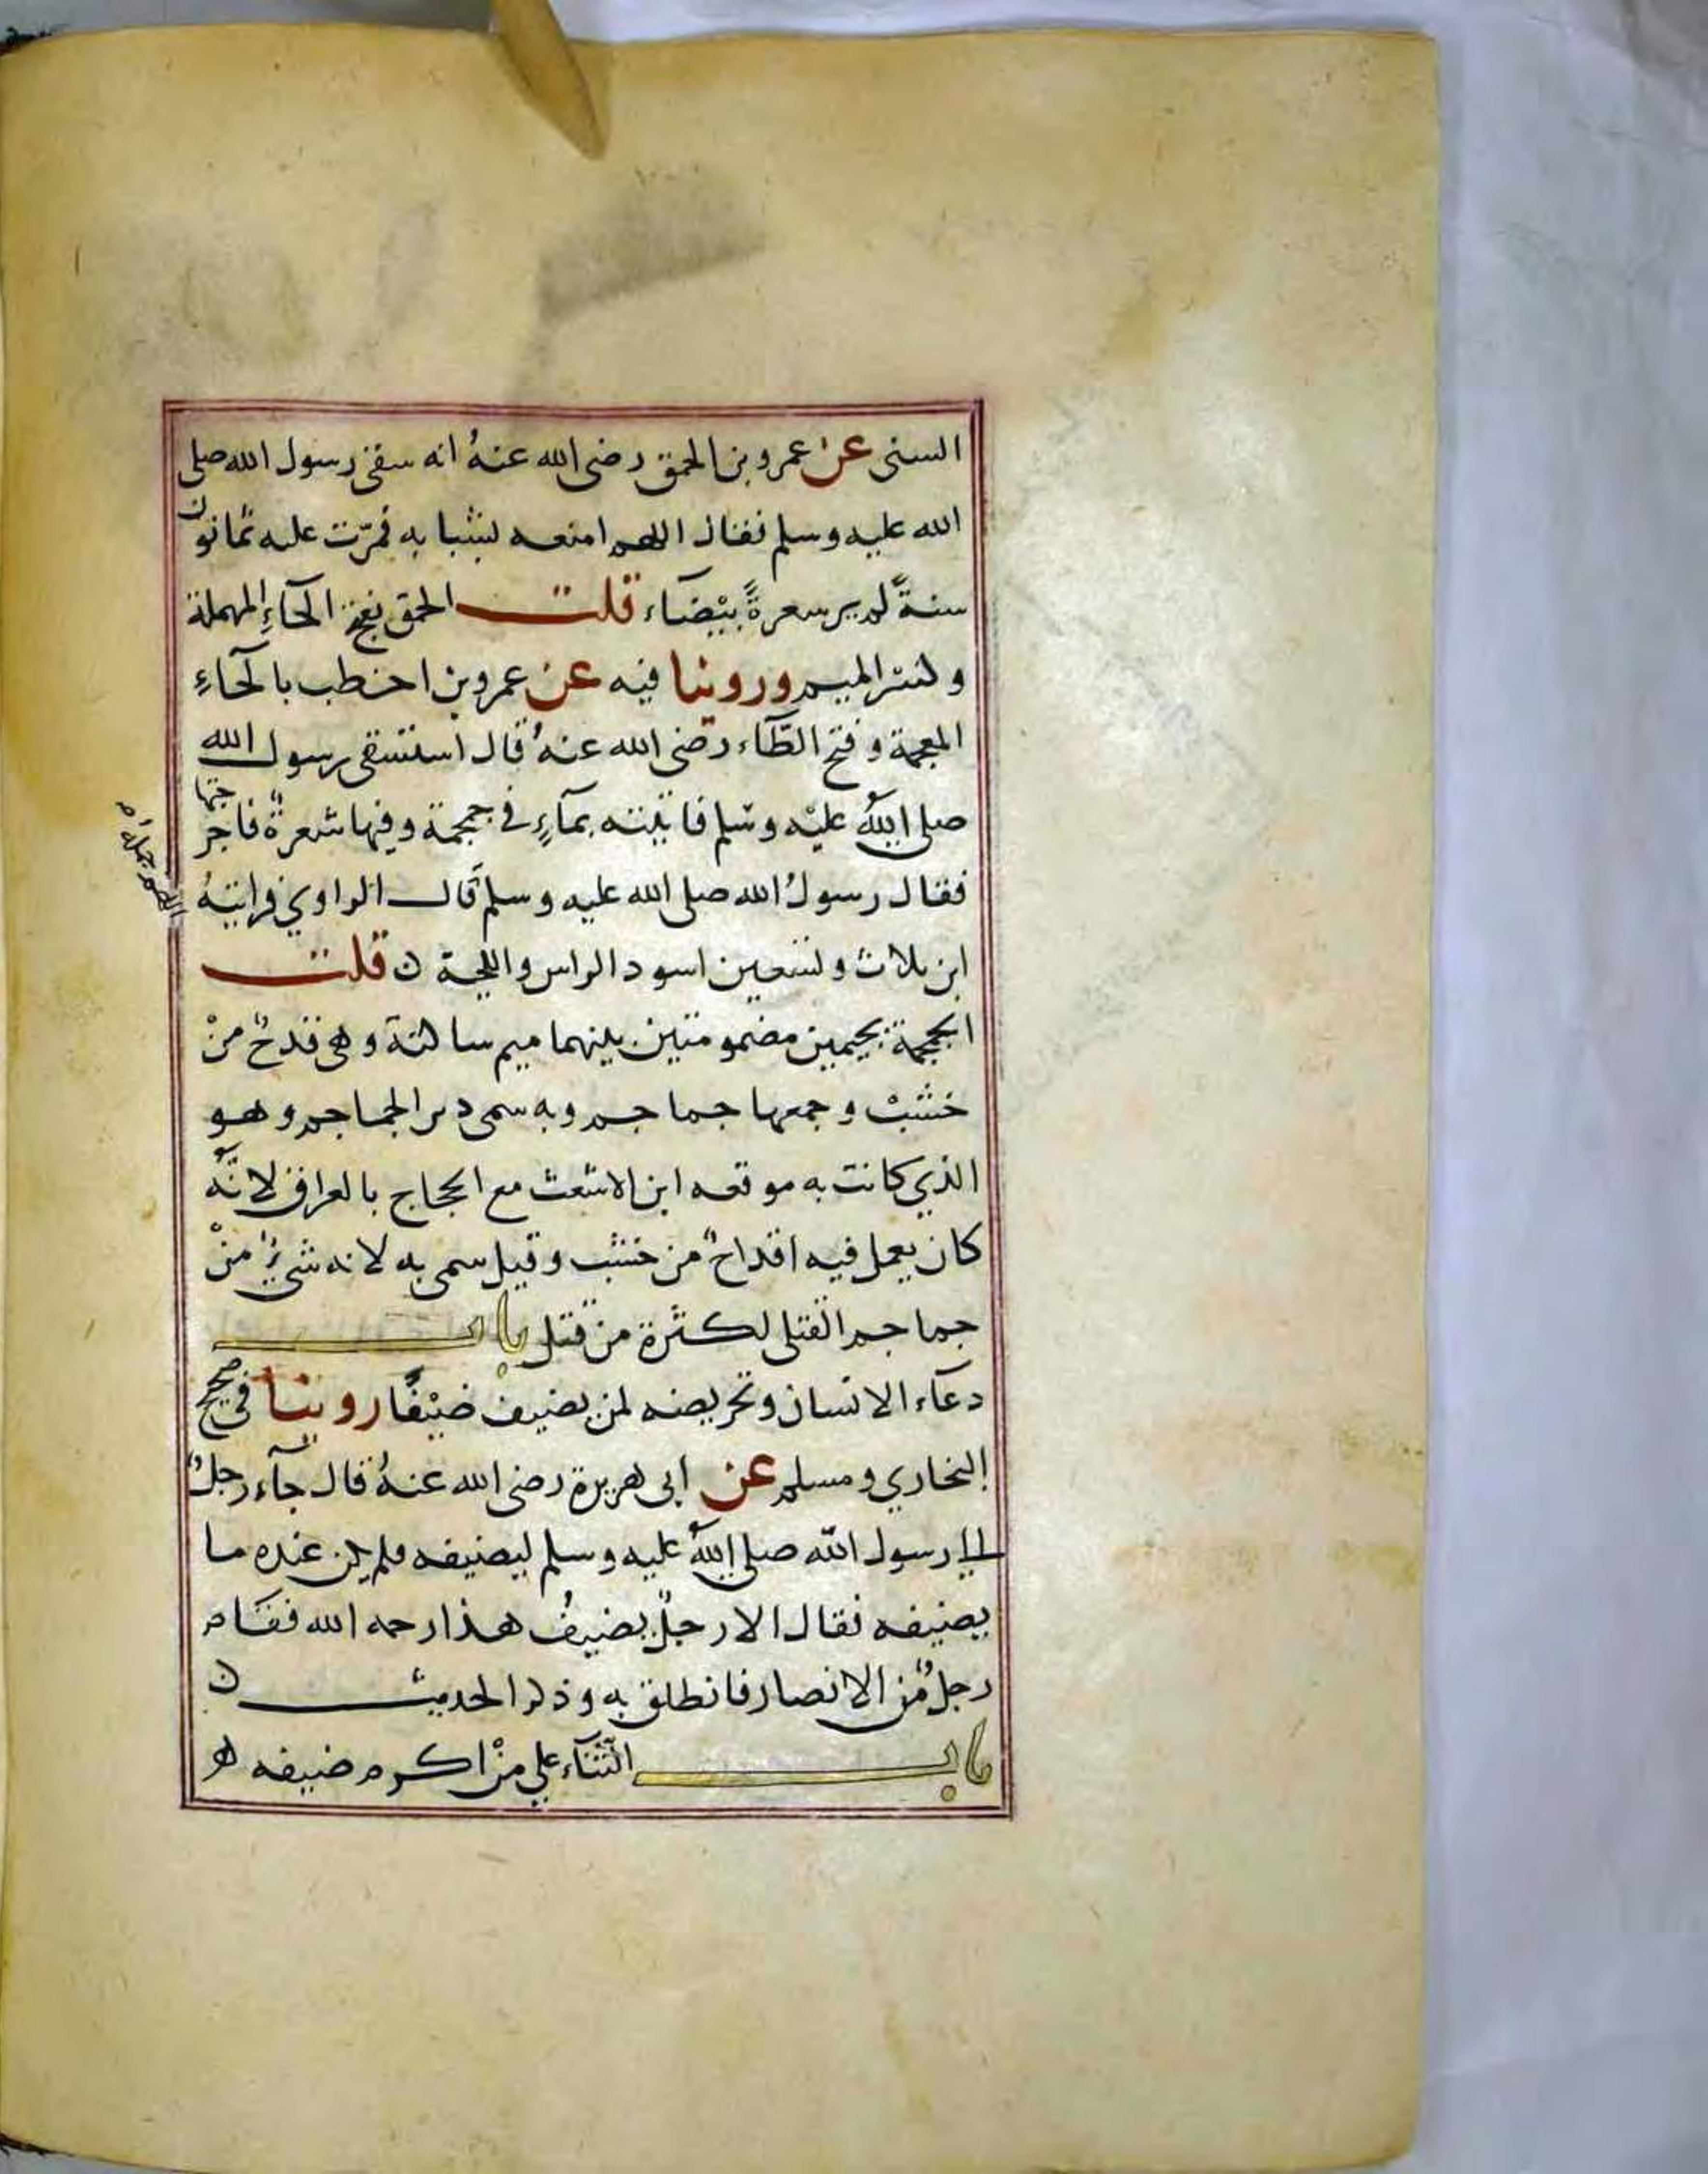 السني عن عمرو بن الحمق رضي الله عنهُ انه سقى رسول الله صلى
الله عليه وسلم فقال اللهم امتعه بشبابه فمرّت عليه ثمانون
سنةً لم ير شعرةً بيْضاء قلت الحمق بفتح الحآءِ المهملة
وكسر الميم وروينا فيه عن عمرو بن اخطب بالخآءِ
المعجمة وفتح الطّآء رضي الله عنهُ قال استسقى رسول الله
صلى اللهُ عليْه وسلم فاتيته بمآءٍ في جمجمة وفيها شعرةٌ فاخرجتها
فقال رسولُ الله صلى الله عليه وسلم قال الراوي فرايتهُ
اللهم جمله
ابن ثلاث وتسعين اسود الراس واللحية ن قلت
الجمجمة بجيمين مضمومتين بينهما ميم ساكنة وهي قدحٌ منْ
خشبْ وجمعها جماجم وبه سمى دير الجماجم وهو
الذي كانت به موقعه ابن الاشعث مع الحجاج بالعراق لانّهُ
كان يعمل فيه اقداحٌ من خشب وقيل سمى به لانه شيءٌ منْ
جماجم القتلى لكثرة من قتل باب
دعآء الانسان وتحريضه لمن يضيف ضيْفًا روينا في صحيح
البخاري ومسلم عن ابي هريرة رضي الله عنهُ قال جآء رجلٌ
الى رسول الله صلى اللهُ عليه وسلم ليضيفه فلم يكن عنده ما
يضيفه فقال الا رجلٌ يضيفُ هذا رحمه الله فقام
رجلٌ من الانصار فانطلق به وذكر الحديث ن
باب الثنآء علي منْ اكرم ضيفه